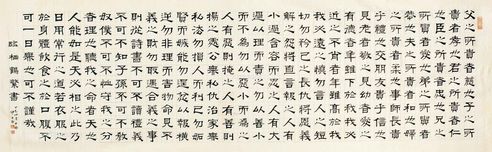 父之所貴者慈也子之所
貴者孝也君之所貴者仁
也臣之所貴者忠也兄之
所貴者友也弟之所貴者
恭也夫之所貴者和也婦
之所貴者柔也事師長貴
乎禮也交朋友貴乎信也
見老者敬之見幼者愛之
有德者年雖下於我我必尊
之不肖者年雖高於我我必
遠之慎勿談人之短
切勿矜己之長仇者以義
解之怨者以直報之人有
小過含容而忍之人有大
過以理而責之勿以善小
而不為勿以惡小而為之
人有惡則掩之人有善則
揚之處公無私仇治家無
私法勿損人而利己勿妒
賢而嫉能勿逞忿而報橫
逆勿非禮而害物命見不
義之財勿取遇合義之事
則從詩書不可不讀禮義
不可不知子孫不可不教
奴僕不可不恤守我之分
者理也聽我之命者天也
人能如是天必相之此乃
日用常行之道若衣服之
於身體飲食之於口腹不
可一日無也可不謹哉